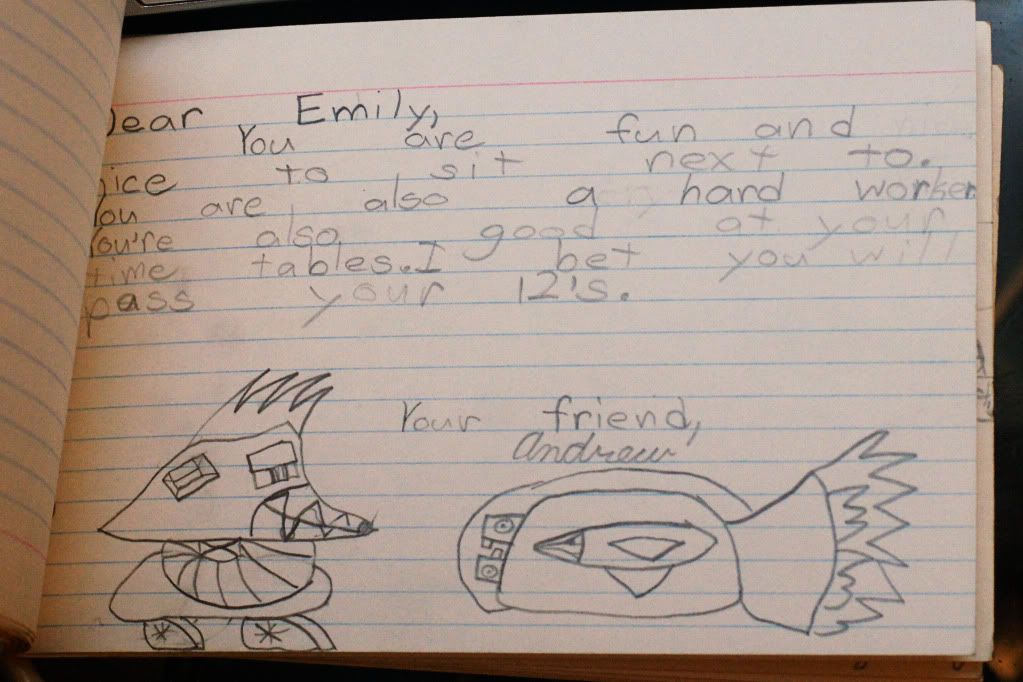 Dear Emily,
You are fun and
nice to sit next to.
You are also a hard worker
You're also good at your
time tables. I bet you will
pass your 12's.
Your friend,
Andrew